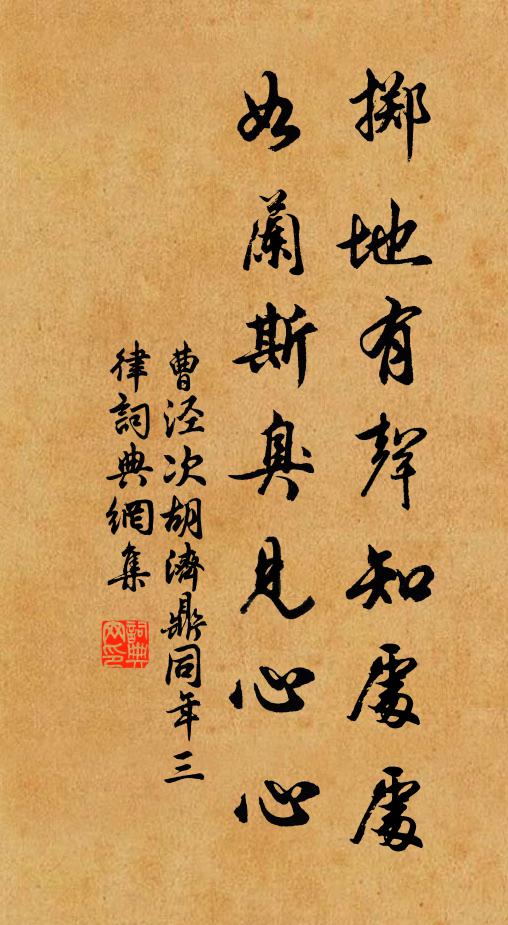 掷地有聲知處處
如蘭斯臭見心心
曹涇次胡濟鼎同年三
律詞典網集
詞典
网印